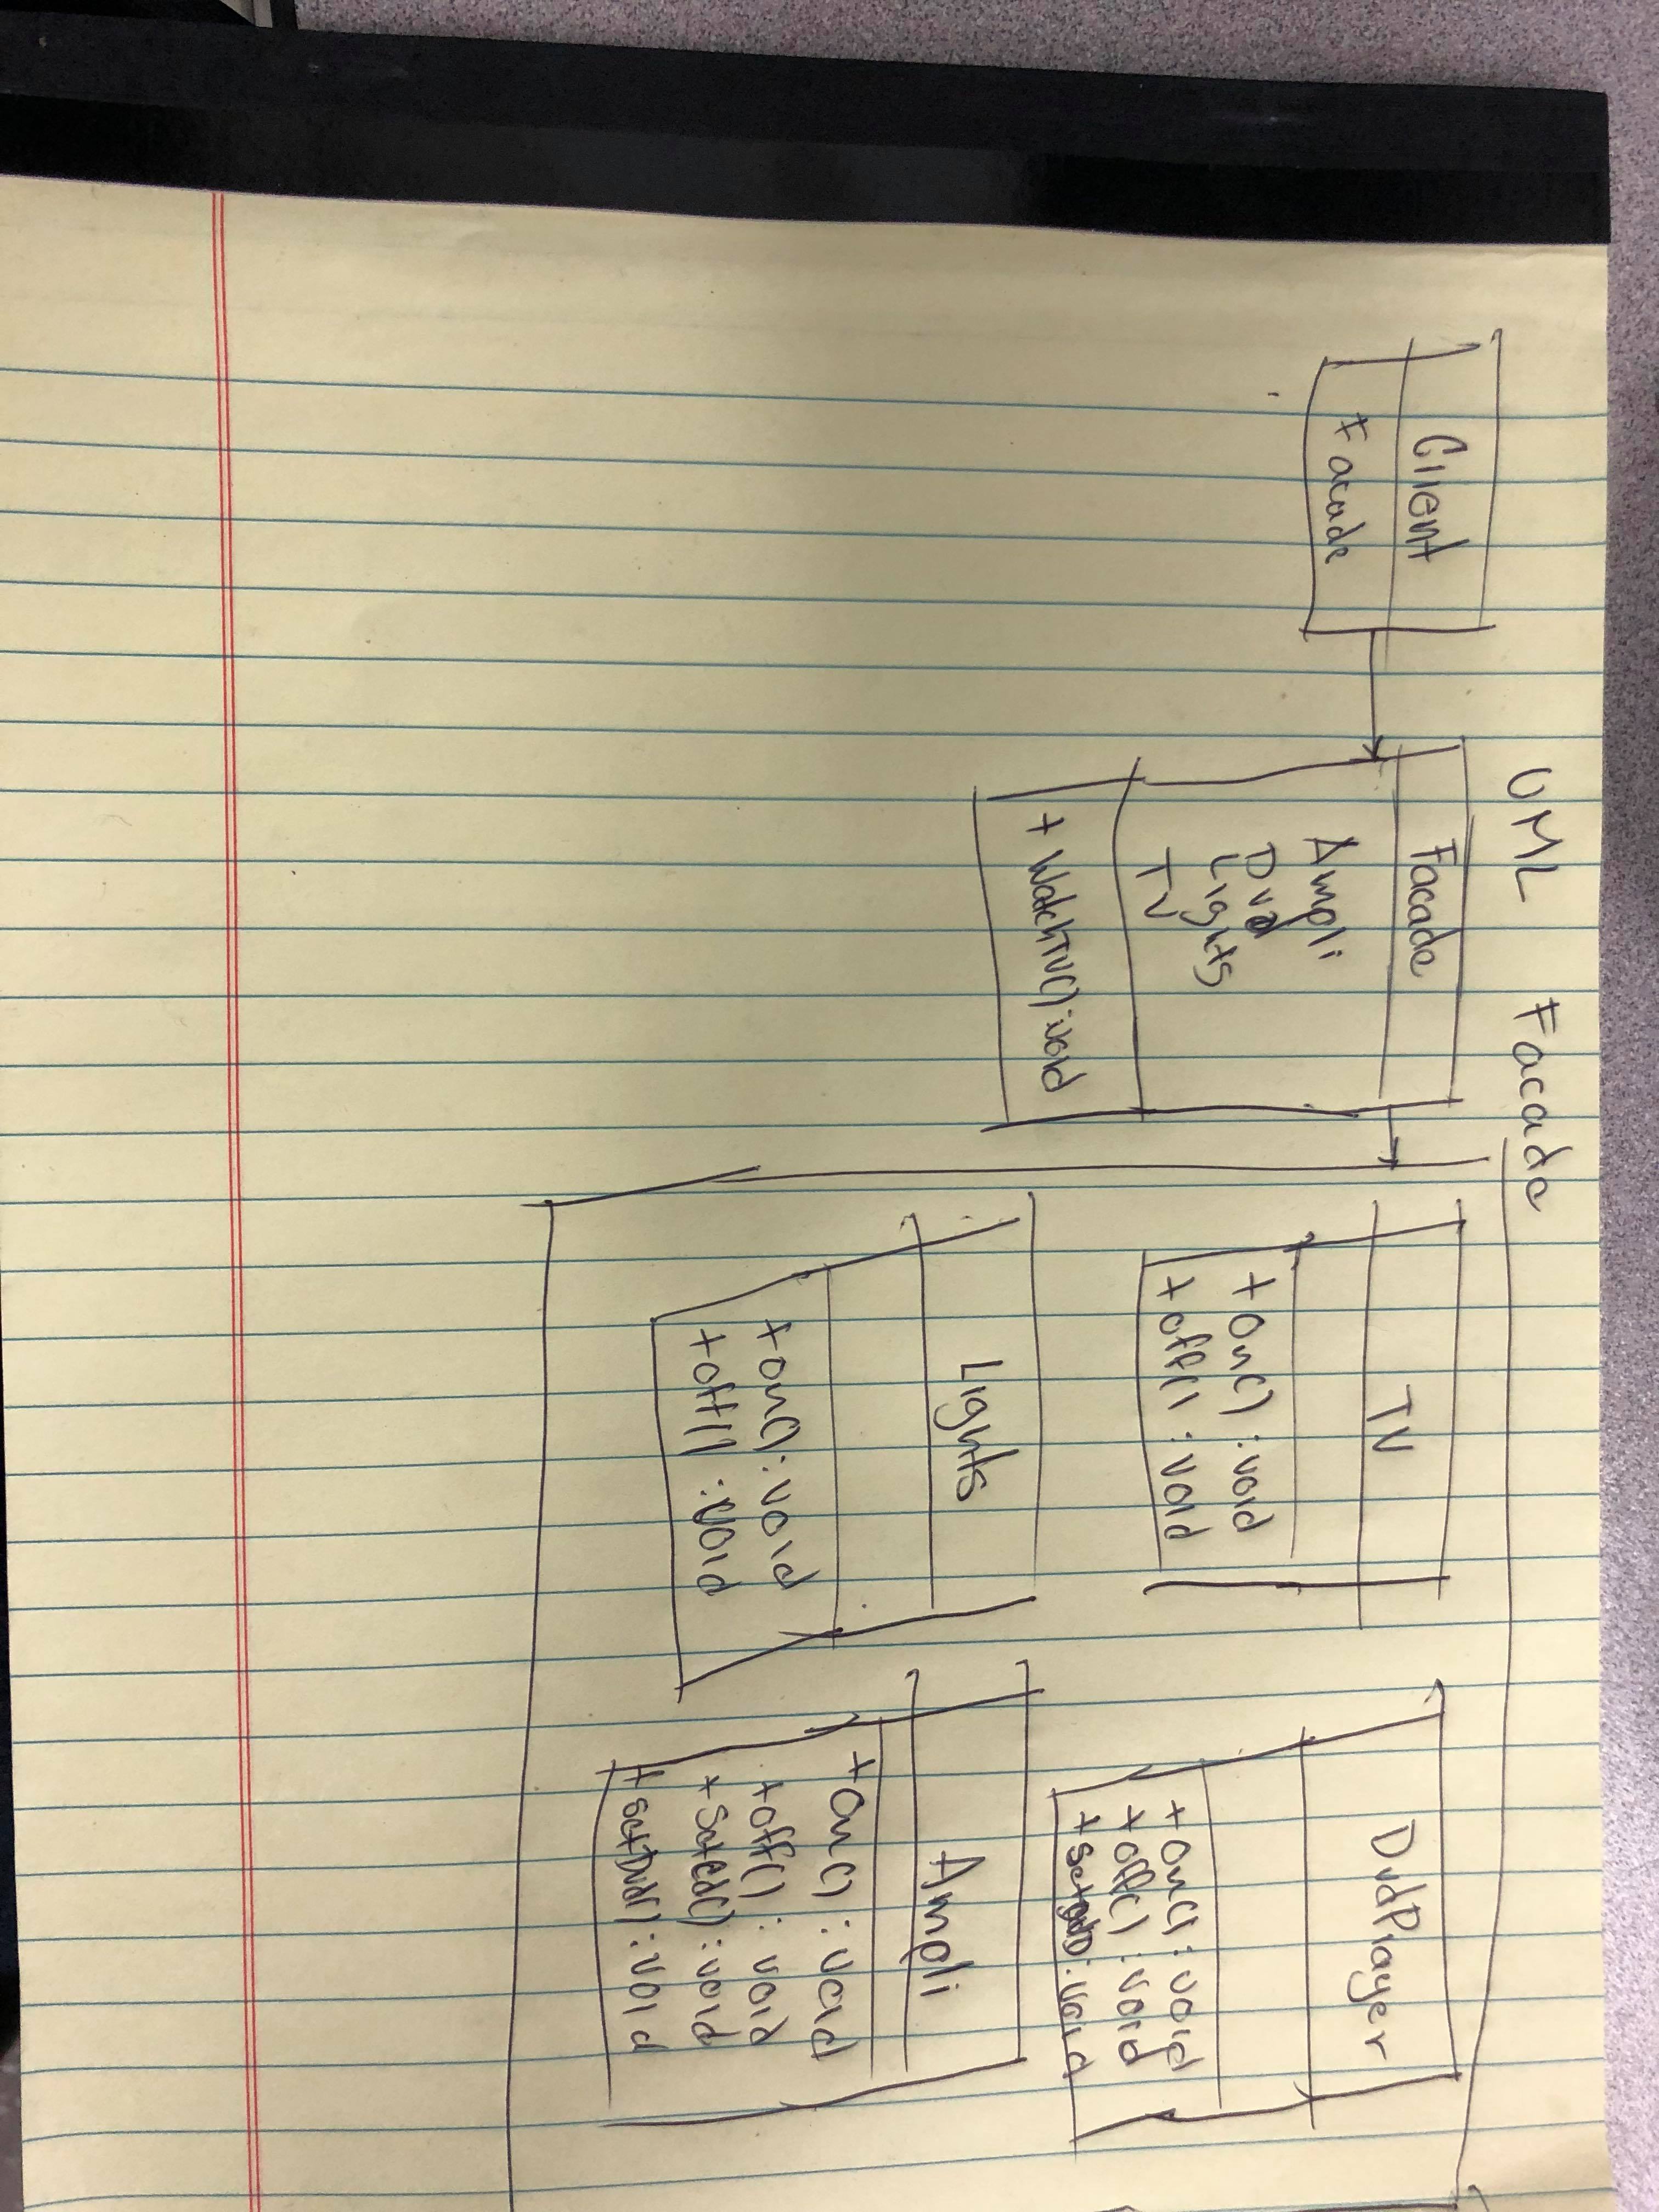 UML Facade
Client
Facade
Facade
Ampli
Dvd
Lights
TV
+ WatchTV() : void
TV
+ on() : void
+ off() : void
DvdPlayer
+ on() : void
+ off() : void
: void
Lights
+ on() : void
+ off() : void
Ampli
+ on() : void
+ off() : void
+ setCd() : void
+ setDvd() : void